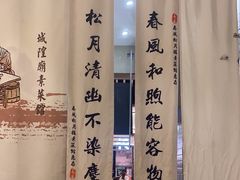 春風和煦能容物
松月清幽不染塵
城隍廟素菜館